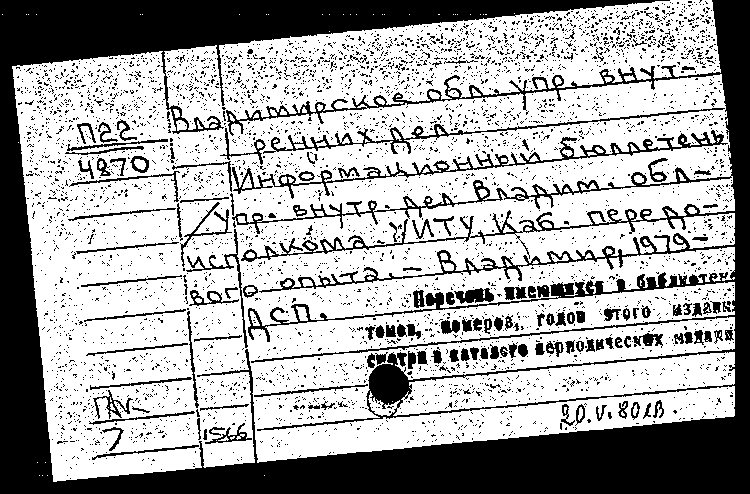 П22
4870
Владимирское обл. упр. внут-
ренних дел.
Информационный бюллетень
/Упр. внутр. дел Владим. обл-
исполкома. УИТУ, Каб. передо-
вого опыта. – Владимир, 1979–
ДСП.
Перечень имеющихся в библиотеке
томов, номеров, годов этого издания
смотри в каталоге периодических издани
1566
20.V.80